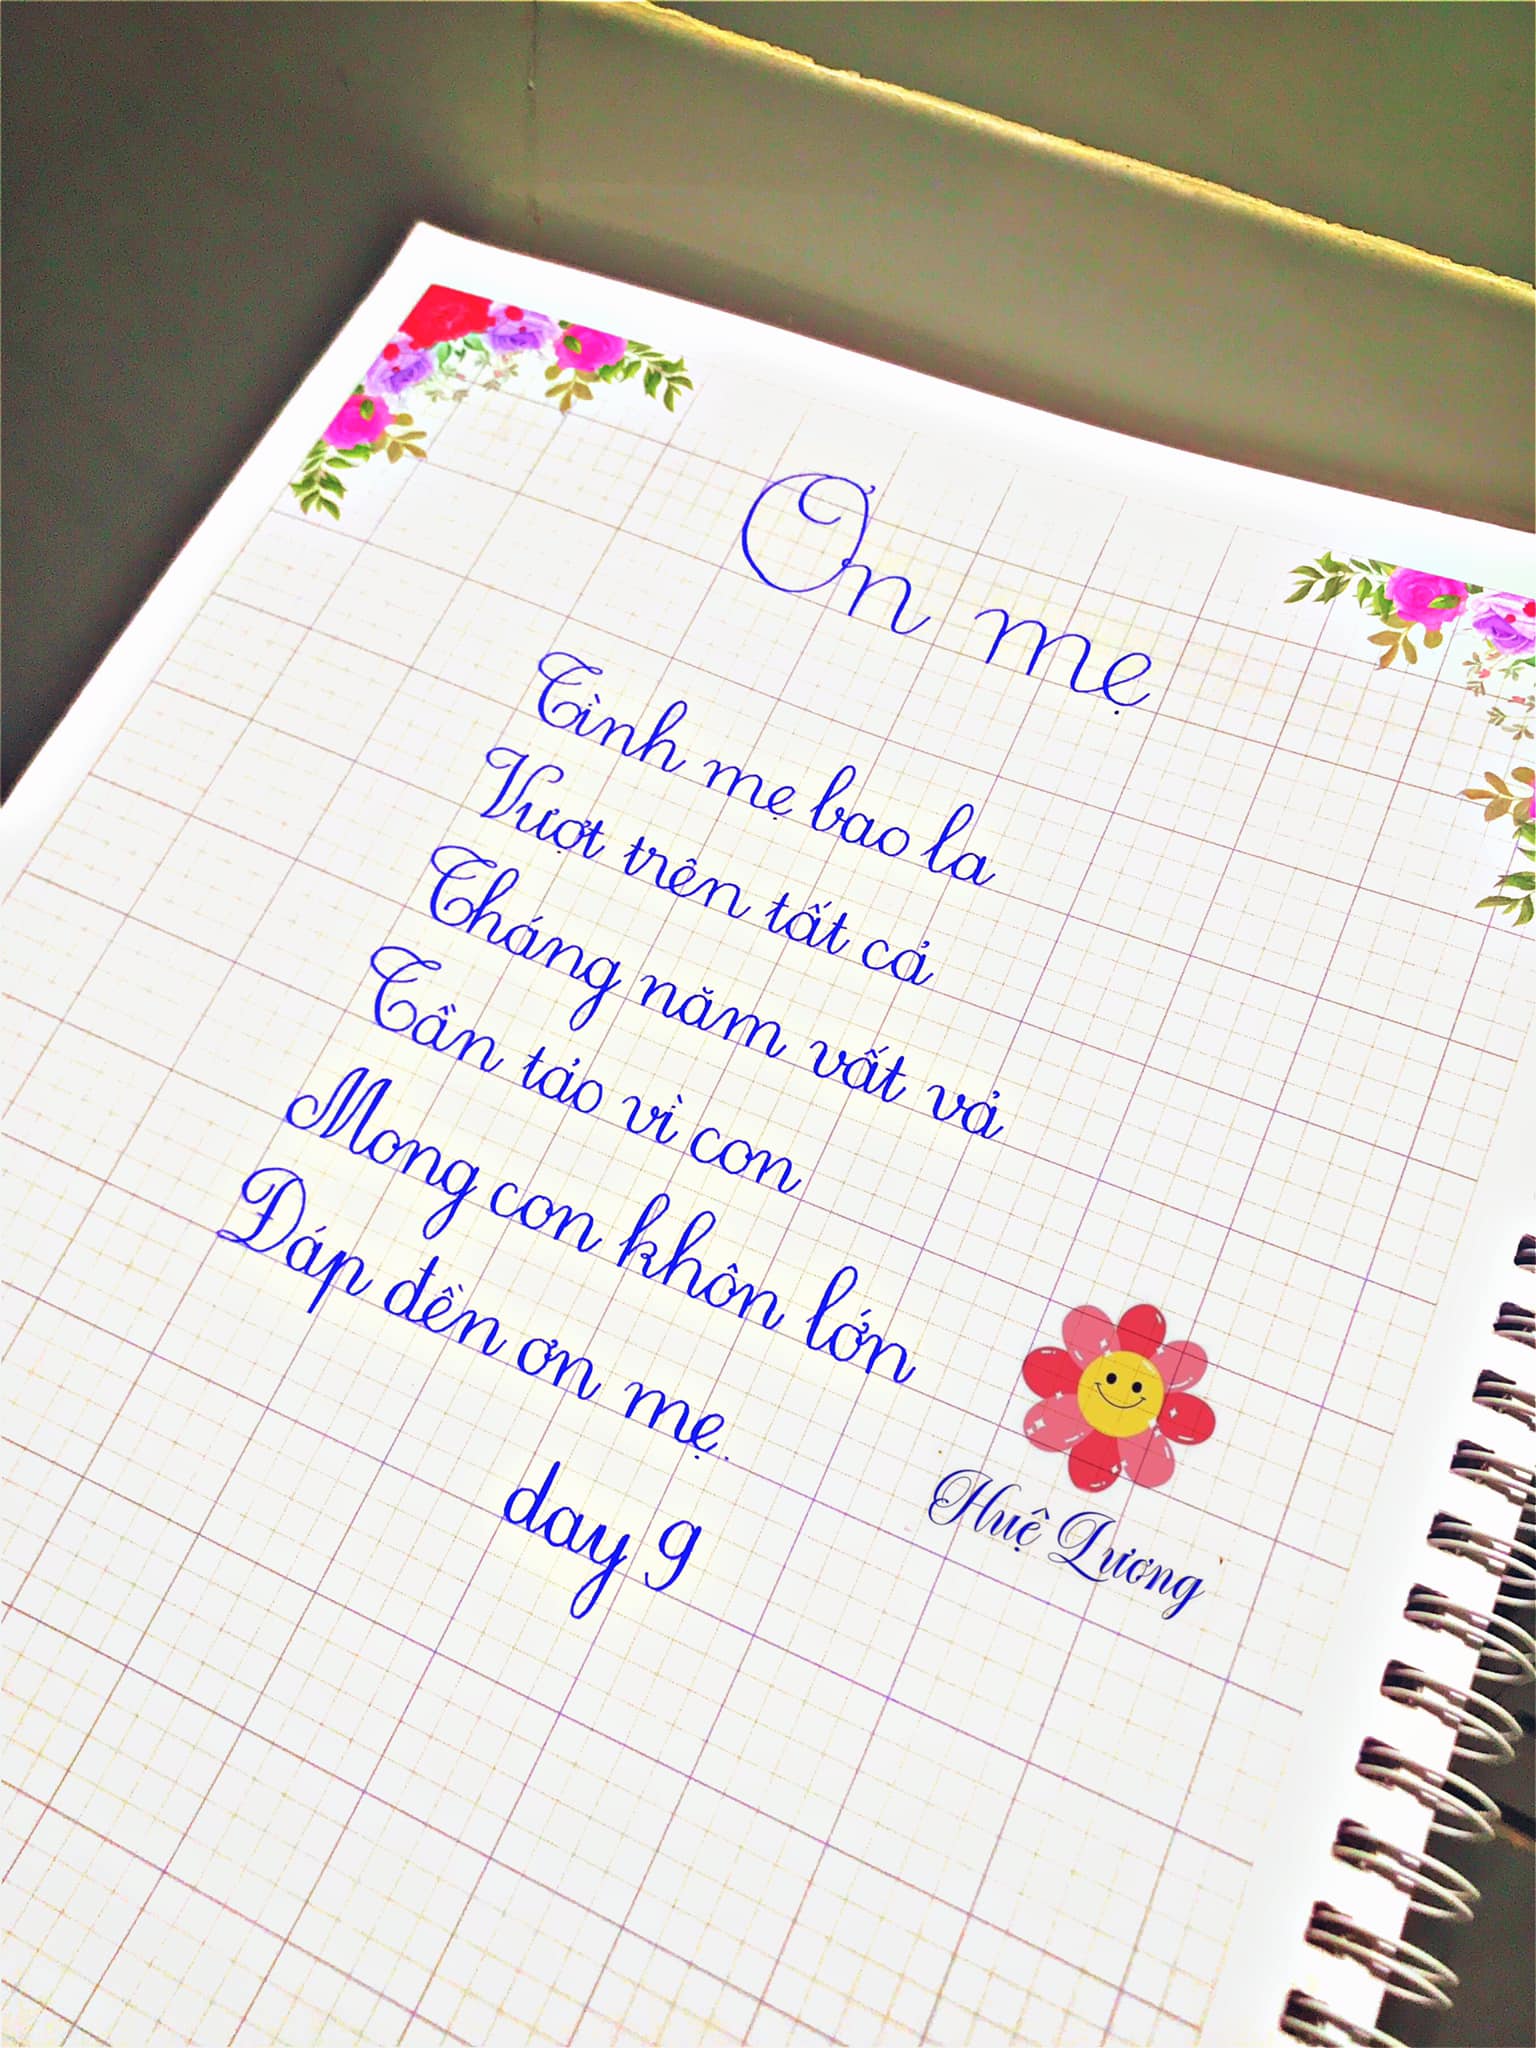 Ơn mẹ
Tình mẹ bao la
Vượt trên tất cả
Tháng năm vất vả
Tần tảo vì con
Mong con khôn lớn
Đáp đền ơn mẹ.
day 9
Huệ Lương